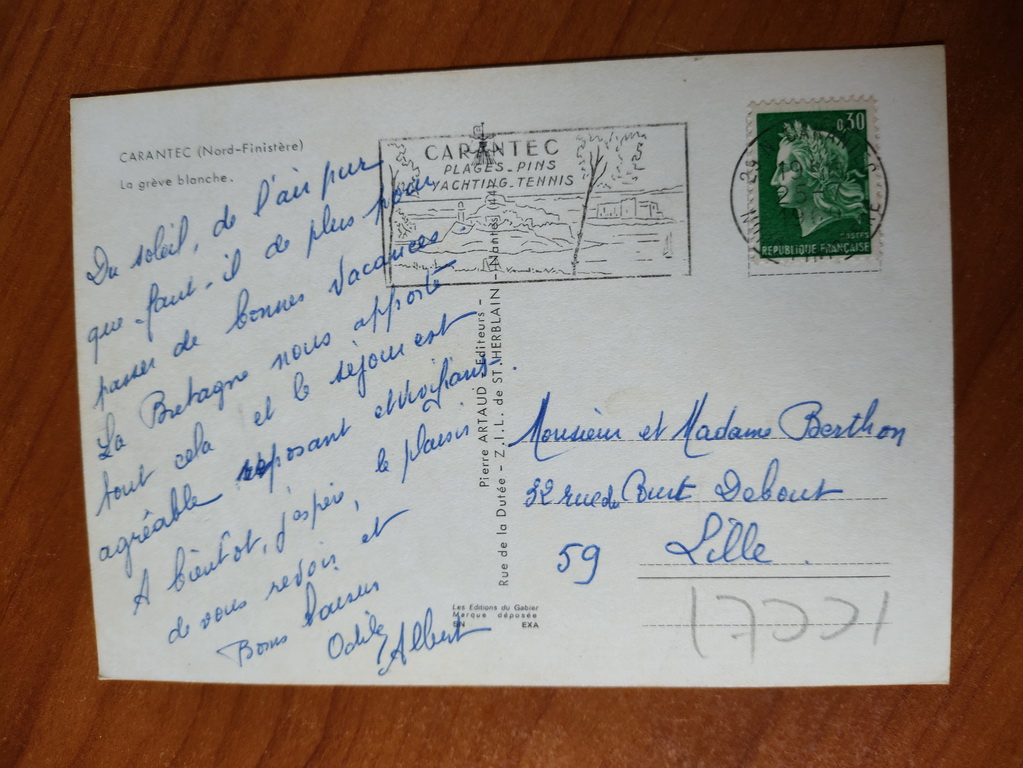 CARANTEC (Nord-Finistère)
La grève blanche.
Du soleil, de l'air pur
que faut-il de plus pour
passer de bonnes vacances.
La Bretagne nous apporte
tout cela et le séjour est
agréable reposant et vivifiant.
A bientôt, j'espère, le plaisir
de vous revoir et
Bons baisers
Odile
Albert
CARANTEC
PLAGES_PINS
YACHTING_TENNIS
0,30
POSTES
REPUBLIQUE FRANÇAISE
Pierre ARTAUD Editeurs -
Rue de la Dutée - Z.I.L. de ST. HERBLAIN - Nantes (44)
Monsieur et Madame Berthon
32 rue du Buet Debout
59 Lille
Les Editions du Gabier
Marque déposée
EXA